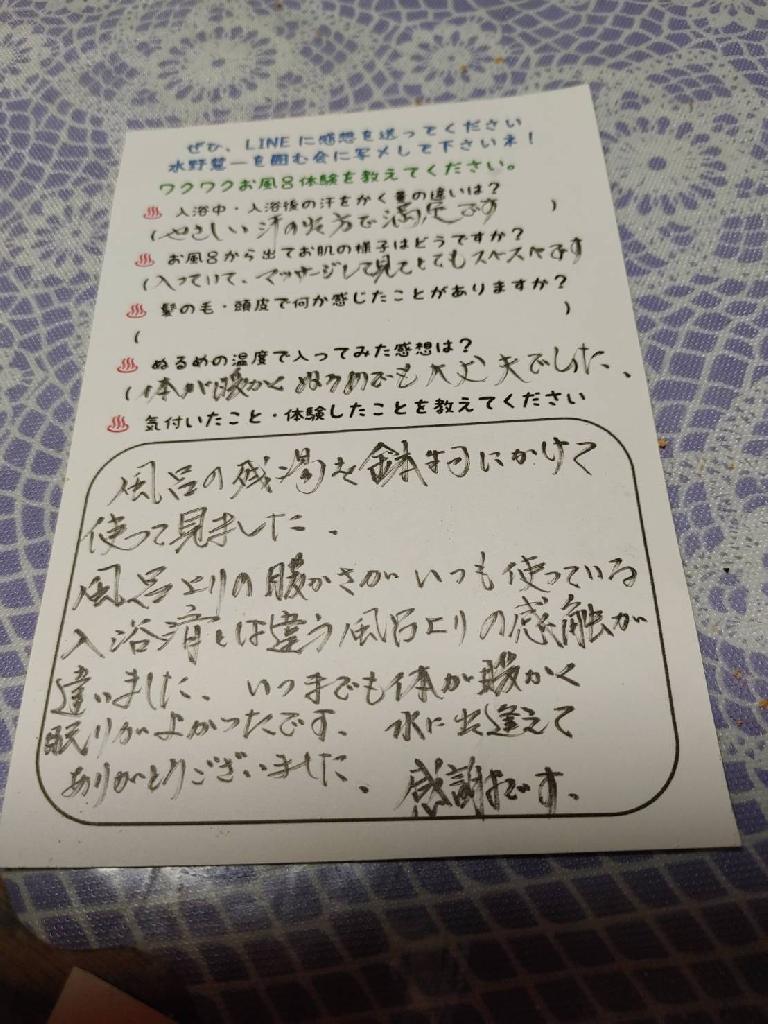 ぜひ、LINEに感想を送ってください
水野賢一を囲む会に写メして下さいネ！
ワクワクお風呂体験を教えてください。
入浴中・入浴後の汗をかく量の違いは？
（やさしい汗の出方で満足です）
お風呂から出てお肌の様子はどうですか？
（入っていて、マッサージして見てとてもスベスベです
髪の毛・頭皮で何か感じたことがありますか？
（ ）
ぬるめの温度で入ってみた感想は？
（体が暖かくぬるめでも大丈夫でした、
気付いたこと・体験したことを教えてください
風呂の残湯を鉢物にかけて
使って見ました．
風呂上りの暖かさがいつも使っている
入浴済とは違う風呂上りの感触が
違いました、いつまでも体が暖かく
眠りがよかったです、水に出逢えて
ありがとうございました．感謝です、